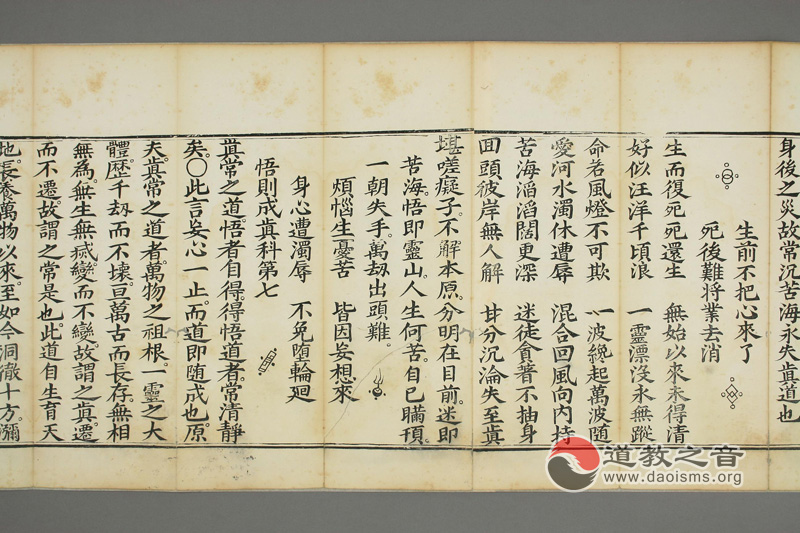 身後之災故常沉苦海永失真道也
生前不把心來了
死後難將業去消
生而復死死還生 無始以來未得清
好似汪洋千頃浪 一靈漂沒永無蹤
命若風燈不可欺 一波纔起萬波隨
愛河水濁休遭辱 混合回風向內持
苦海滔滔闊更深 迷徒貪著不抽身
回頭彼岸無人解 甘分沉淪失至真
堪嗟癡子不解本原分明在目前迷即
苦海悟即靈山人生何苦自己瞞頇
一朝失手萬劫出頭難
煩惱生憂苦 皆因妄想來
身心遭濁辱 不免墮輪廻
悟則成真科第七
真常之道悟者自得得悟道者常清靜
矣〇此言妄心一止而道即随成也原
夫真常之道者萬物之祖根一靈之大
體歷千刼而不壞亘萬古而長存無相
無為無生無滅變而不變故謂之真遷
而不遷故謂之常是也此道自生育天
地長養萬物以來至如今洞徹十方瀰
道教之音
www.daoisms.org